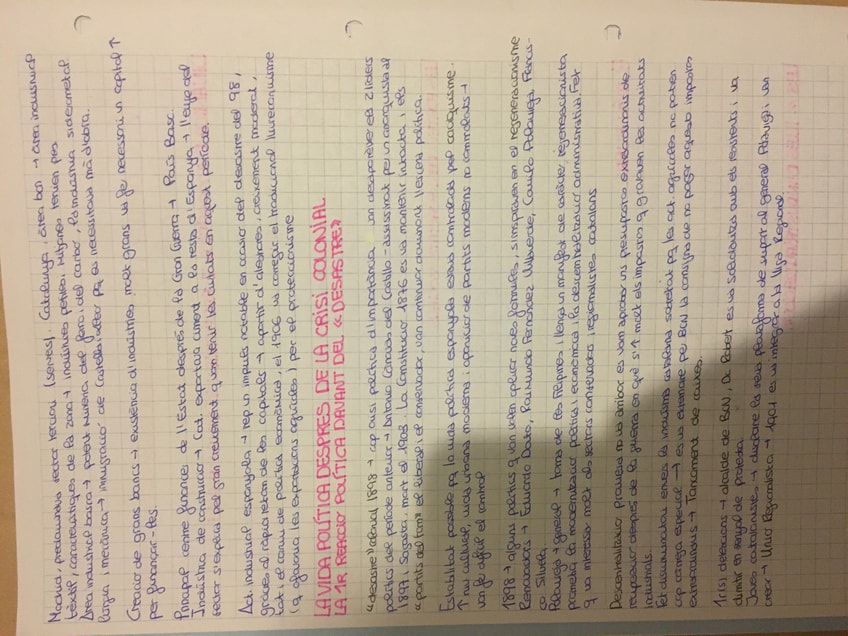 Madrid, predominava sector terciari (serveis). Catalunya i àrea bcn → àrea industrial
tèxtil, característiques de la zona → indústries petites i mitjanes tenien pes
Àrea industrial basca → potent minera del ferro i del carbó, la indústria siderometal·
lúrgica i mecànica → immigració de Castella i altres pq es necessitava mà d'obra.
Creació de grans bancs → existència d'indústries molt grans va fer necessari un capital ↑
per finançar-les.
Principal centre financer de l'Estat després de la Gran Guerra → País Basc.
Indústria de construcció → Cat. exportava ciment a la resta d'Espanya → l'auge del
sector s'explica pel gran creixement q van tenir les ciutats en aquest període.
Act. industrial espanyola → rep un impuls notable en ocasió del desastre del 98,
gràcies al ràpid retorn de les capitals → a partir d'aleshores, creixement moderat,
tot i el canvi de política econòmica, el 1906 va corregir el tradicional lliurecanvisme
(q afavoria les exportacions agrícoles) per el proteccionisme
LA VIDA POLÍTICA DESPRÉS DE LA CRISI COLONIAL
LA 1R REACCIÓ POLÍTICA DAVANT DEL «DESASTRE»
«desastre» colonial 1898 → cap crisi política d'importància, van desaparèixer els 2 líders
polítics del període anterior → Antonio Cánovas del Castillo - assassinat per un anarquista al
1897 i Sagasta, mort el 1903. La Constitució 1876 es va mantenir intacta, i els
«partits del torn» el liberal i el conservador, van continuar dominant l'escena política.
Estabilitat possible pq la vida política espanyola estava controlada pel caciquisme.
↑ niv. cultural, vida urbana moderna i aparició de partits moderns no controlats →
van fer afluir el control
1898 → alguns polítics q van voler aplicar noves fórmules, s'inspiraven en el regeneracionisme
Renovadors → Eduardo Dato, Raimundo Fernández Villaverde, Camilo Polavieja, Francis-
co Silvela.
Polavieja → general → torna de les Filipines i llença un manifest de caràcter regeneracionista
prometia la modernització política i econòmica i la descentralització administrativa. Fet
q va interessar molt als sectors conservadors i regionalistes catalans
Descentralització promesa no va arribar, es van aprovar uns pressupostos extraordinaris de
recuperació després de la guerra en què s'↑ molt els impostos q gravaven les activitats
industrials.
Fet discriminatori envers la indústria catalana sobretot pq les act. agrícoles no patien
cap càrrega especial → es va estendre per BCN la consigna de no pagar aquests impostos
extraordinaris → Tancament de caixes.
1r(s) detencions → alcalde de BCN, Dr. Robert es va solidaritzar amb els resistents i va
dimitir en senyal de protesta.
Joves catalanistes → desfan la seva plataforma de suport al general Polavieja i van
crear → Unió Regionalista → 1901 es va integrar a la Lliga Regional.